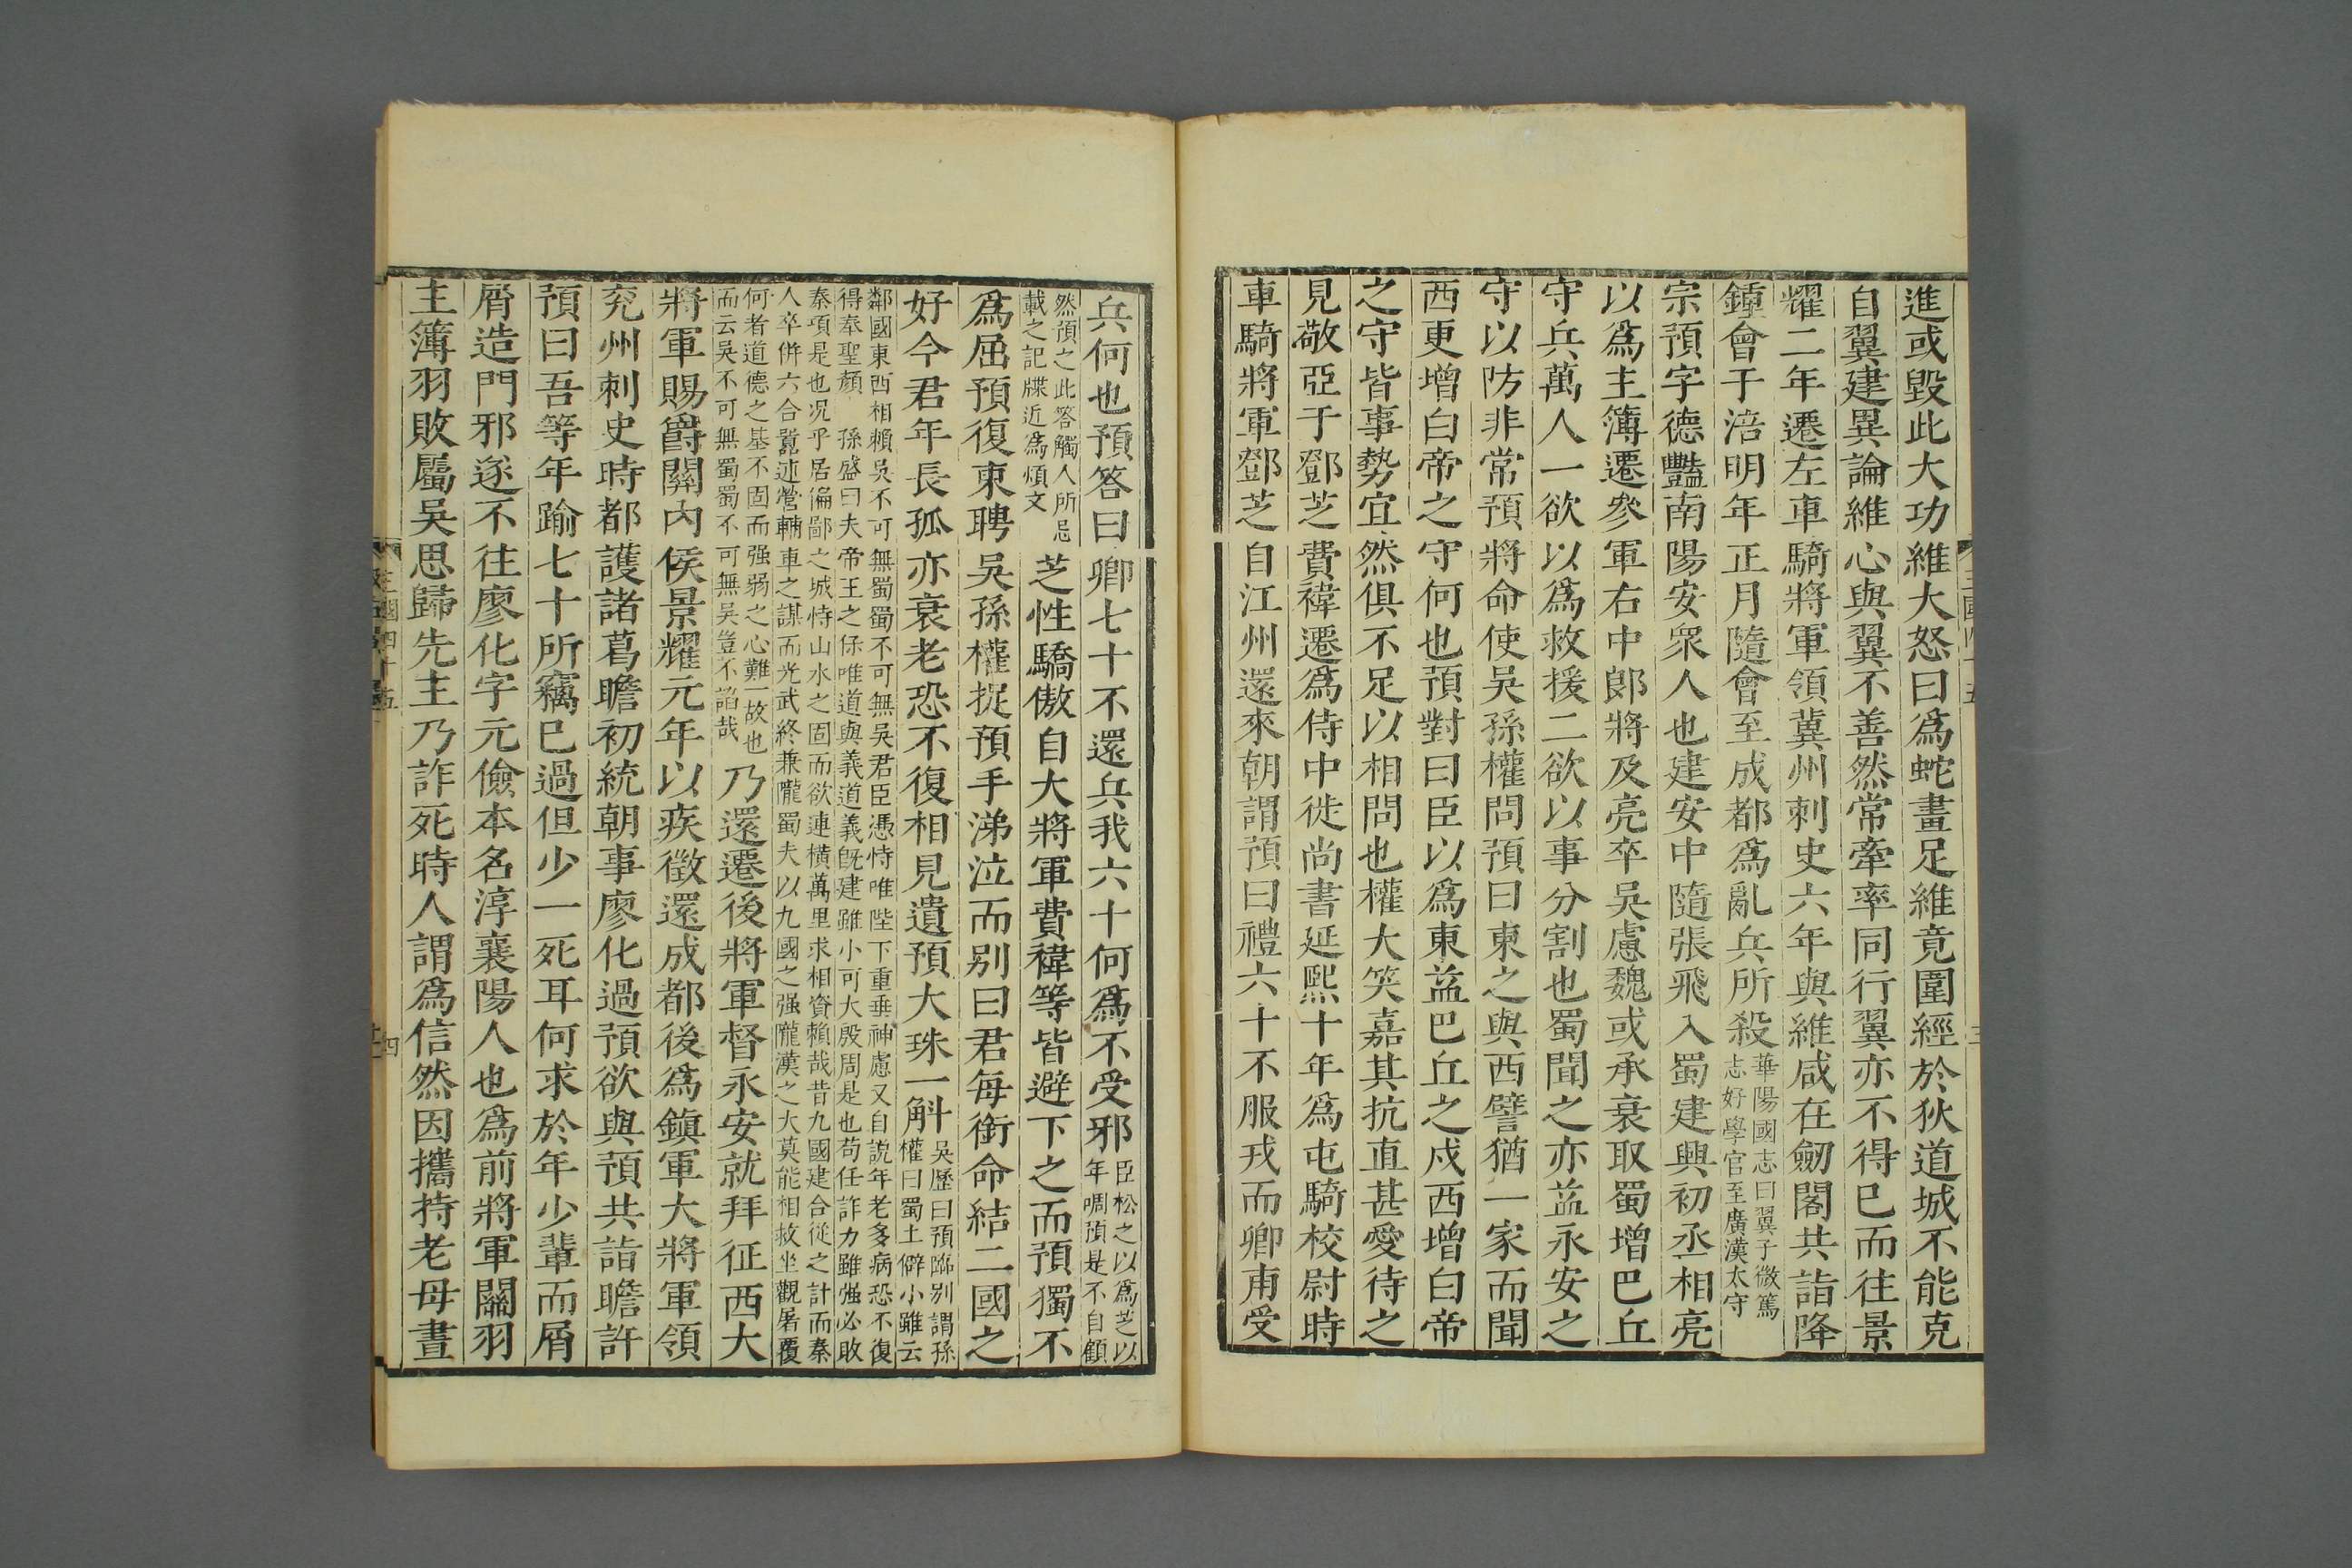 進或毀此大功維大怒曰爲蛇畫足維竟圍經於狄道城不能克
自翼建異論維心與翼不善然常牽率同行翼亦不得已而往景
耀二年遷左車騎將軍領冀州刺史六年與維咸在劒閣共詣降
鍾會于涪明年正月隨會至成都爲亂兵所殺
華陽國志曰翼子微篤
志好學官至廣漢太守
宗預字德豔南陽安衆人也建安中隨張飛入蜀建興初丞相亮
以爲主簿遷參軍右中郎將及亮卒吳慮魏或承衰取蜀增巴丘
守兵萬人一欲以爲救援二欲以事分割也蜀聞之亦益永安之
守以防非常預將命使吳孫權問預曰東之與西譬猶一家而聞
西更增白帝之守何也預對曰臣以爲東益巴丘之戍西增白帝
之守皆事勢宜然俱不足以相問也權大笑嘉其抗直甚愛待之
見敬亞于鄧芝費禕遷爲侍中徙尚書延熙十年爲屯騎校尉時
車騎將軍鄧芝自江州還來朝謂預曰禮六十不服戎而卿甫受
兵何也預答曰卿七十不還兵我六十何爲不受邪
臣松之以爲芝以
年啁預是不自顧
然預之此答觸人所忌
載之記牒近爲煩文
芝性驕傲自大將軍費禕等皆避下之而預獨不
爲屈預復東聘吳孫權捉預手涕泣而别曰君每銜命結二國之
好今君年長孤亦衰老恐不復相見遺預大珠一斛
吳歷曰預臨别謂孫
權曰蜀土僻小雖云
鄰國東西相賴吳不可無蜀蜀不可無吳君臣憑恃唯陛下重垂神慮又自說年老多病恐不復
得奉聖顏 孫盛曰夫帝王之保唯道與義道義旣建雖小可大殷周是也苟任詐力雖强必敗
秦項是也況乎居偏鄙之城恃山水之固而欲連橫萬里求相資賴哉昔九國建合從之計而秦
人卒併六合囂述營輔車之謀而光武終兼隴蜀夫以九國之强隴漢之大莫能相救坐觀屠覆
何者道德之基不固而强弱之心難一故也
而云吳不可無蜀蜀不可無吳豈不諂哉
乃還遷後將軍督永安就拜征西大
將軍賜爵關內侯景耀元年以疾徵還成都後爲鎭軍大將軍領
兖州刺史時都護諸葛瞻初統朝事廖化過預欲與預共詣瞻許
預曰吾等年踰七十所竊已過但少一死耳何求於年少輩而屑
屑造門邪遂不往廖化字元儉本名淳襄陽人也爲前將軍關羽
主簿羽敗屬吳思歸先主乃詐死時人謂爲信然因攜持老母晝